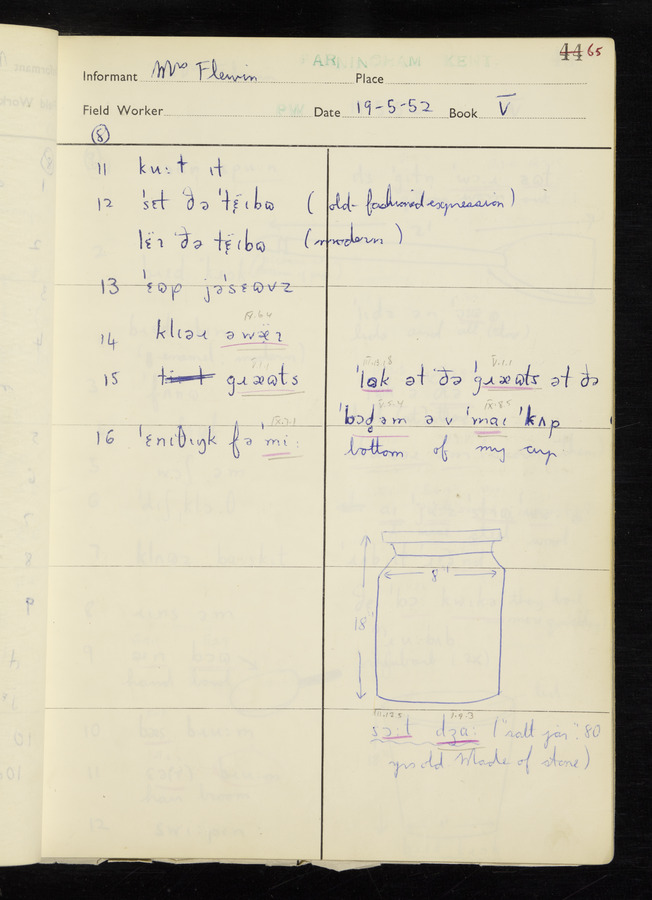 44 65
Informant Mrs Flewin Place
Field Worker Date 19-5-52 Book V
⑧
11 kuːt ɪt
12 ˈsɛt ðə ˈtɛ̈ɪbɷ (old-fashioned expression)
lɛ̈ɪ ðə tɛ̈ɪbɷ (modern)
13 ˈɛɷp jəˈsɛɷvz
IX.6.4
14 klɪəɪ əwæ̈ɪ
V.1.1
15 gɹɛæts
ˈlɷk ət ðə ˈgɹæɷts ət ðə
V.1.1
ˈbɔdəm ə v ˈmaɪ ˈkʌp
bottom of my cup
16 ˈɛnɪθɪŋk fə ˈmiː
8"
18"
sɔːt dʒaː ("salt jar". 80
yrs old. Made of stone)